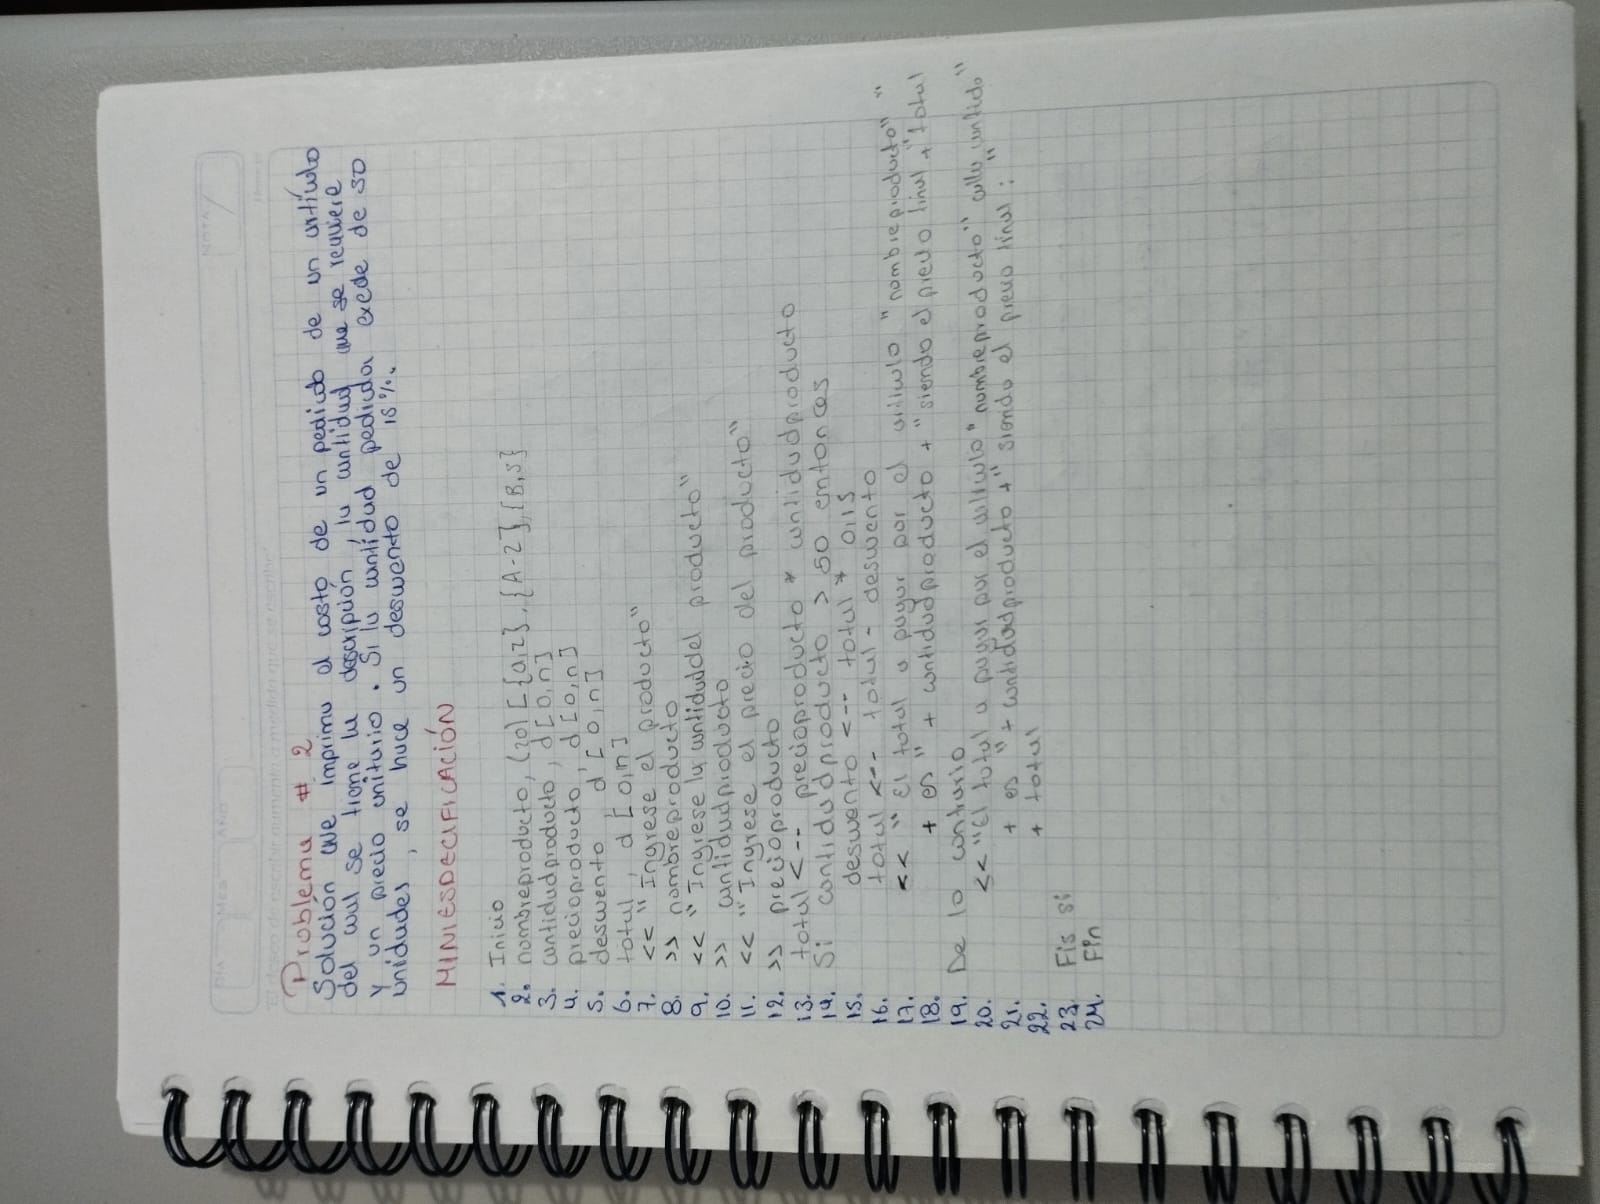 Problema # 2
Solución que imprima el costo de un pedido de un artículo
del cual se tiene la descripción, la cantidad que se requiere
y un precio unitario. Si la cantidad pedida excede de 50
unidades, se hace un descuento de 15%.
MINIESPECIFICACIÓN
1. Inicio
2. nombreproducto, (20) [{a,z}, {A-Z}, {B,s}
3. cantidadproducto, d [0,n]
4. precioproducto, d [0,n]
5. descuento d [0,n]
6. total, d [0,n]
7. << "Ingrese el producto"
8. >> nombreproducto
9. << "Ingrese la cantidad del producto"
10. >> cantidadproducto
11. << "Ingrese el precio del producto"
12. >> precioproducto
13. total <--- precioproducto * cantidadproducto
14. Si cantidadproducto > 50 entonces
15. descuento <--- total * 0,15
16. total <--- total - descuento
17. << "El total a pagar por el artículo "nombreproducto" "
18. + es " + cantidadproducto + "siendo el precio final + "total
19. De lo contrario
20. << "El total a pagar por el artículo "nombreproducto" cuya cantidad"
21. + es " + cantidadproducto + " siendo el precio final: "
22. + total
23. Fis si
24. Fin